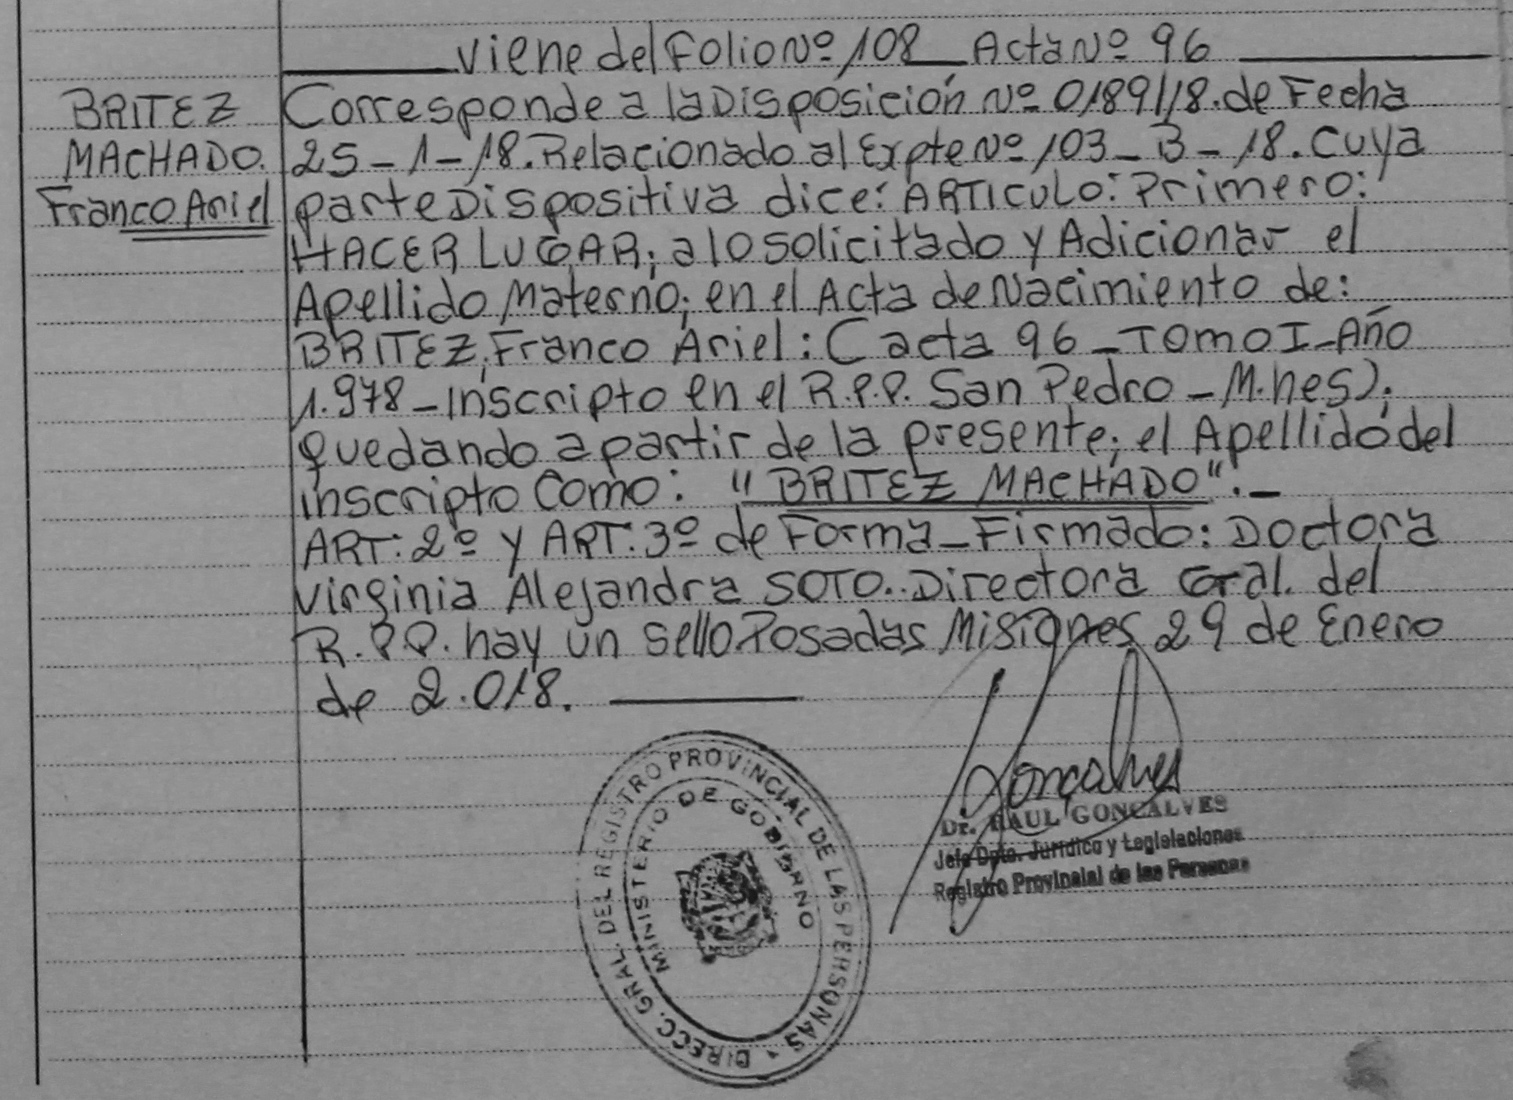 viene del Folio Nº 108 Acta Nº 96
BRITEZ
MACHADO.
Franco Ariel
Corresponde a la Disposición Nº 0189/18. de Fecha
25-1-18. Relacionado al Expte Nº 103-B-18. Cuya
parte Dispositiva dice: ARTICULO: Primero:
HACER LUGAR; a lo solicitado y Adicionar el
Apellido Materno; en el Acta de Nacimiento de:
BRITEZ, Franco Ariel: (acta 96-Tomo I-Año
1.978-Inscripto en el R.P.P. San Pedro-M.nes);
quedando a partir de la presente; el Apellido del
inscripto Como: "BRITEZ MACHADO".-
ART: 2º y ART: 3º de Forma-Firmado: Doctora
Virginia Alejandra SOTO.. Directora Gral. del
R.P.P. hay un sello Posadas Misiones 29 de Enero
de 2.018.
DIRECC. GRAL. DEL REGISTRO PROVINCIAL DE LAS PERSONAS
MINISTERIO DE GOBIERNO
Gonçalves
Dr. RAUL GONCALVES
Jefe Dpto. Jurídico y Legislaciones
Registro Provincial de las Personas